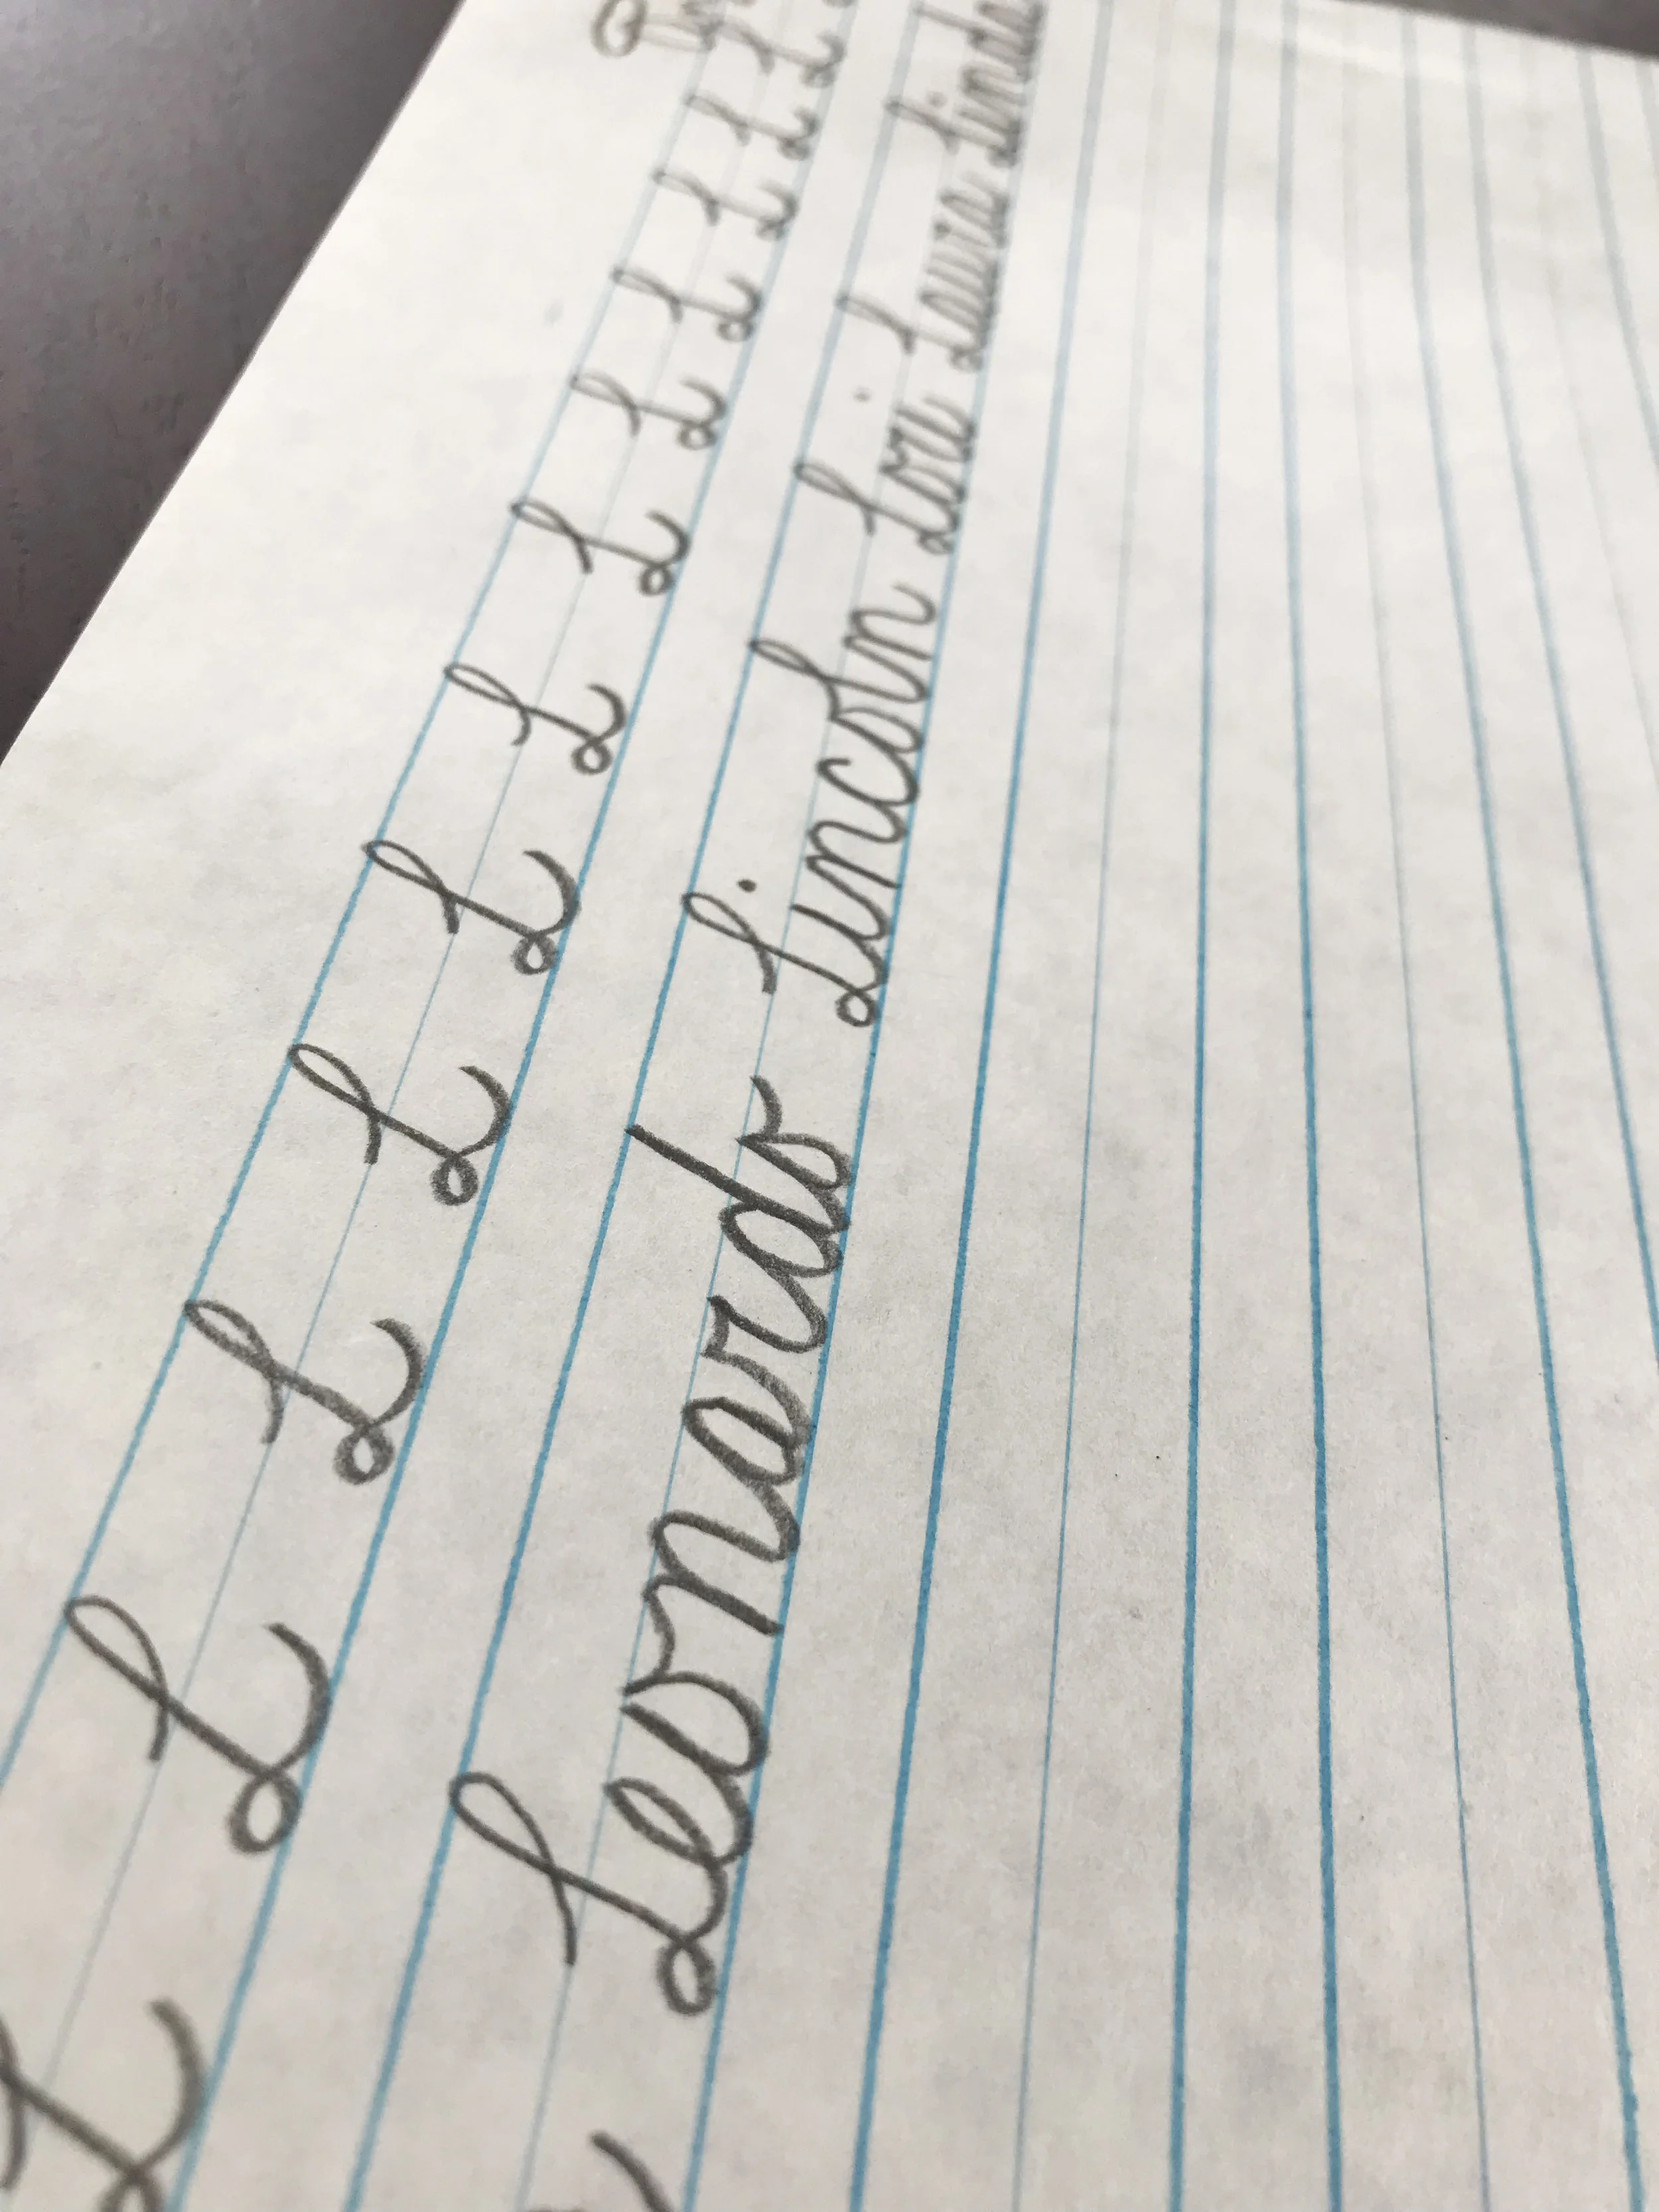 L L L L L L L L L L L L
Leonardo Lincoln Lori Laura Linda